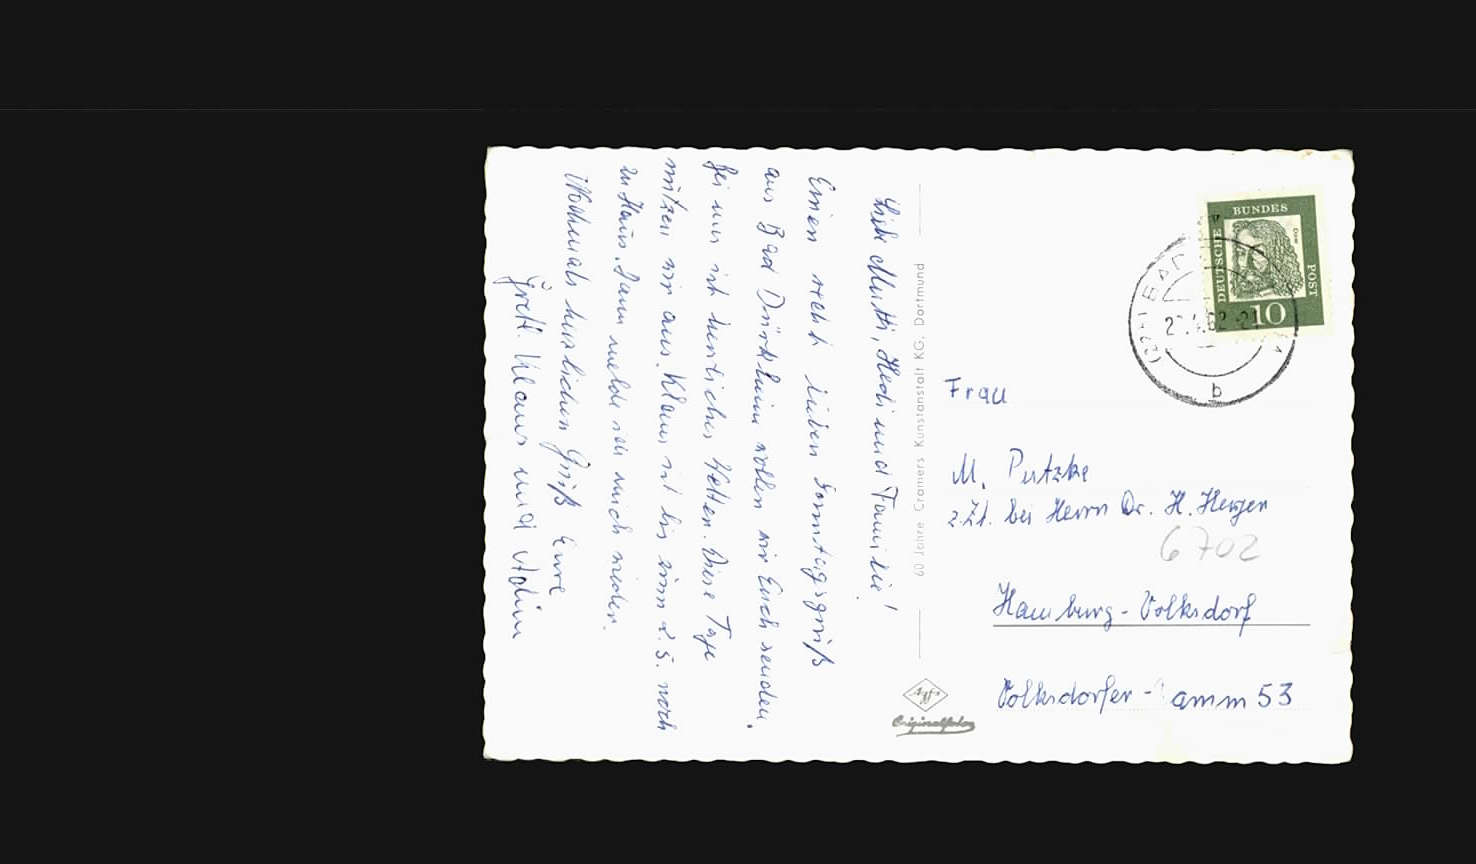 Liebe Mutti, Hedi und Familie!
Einen recht lieben Sonntagsgruß
aus Bad Dürkheim wollen wir Euch senden.
Bei uns ist herrliches Wetter. Diese Tage
nützen wir aus. Klaus ist bis zum 2. 5. noch
zu Haus. Dann melde ich mich wieder.
Nochmals herzlichen Gruß Eure
Gretl. Klaus und Achim
60 Jahre Cramers Kunstanstalt KG. Dortmund
Agfa
Originalfoto
DEUTSCHE BUNDES POST
10
BAD
62-21
b
Frau
M. Putzke
z.Zt. bei Herrn Dr. H.
6702
Hamburg-Volksdorf
Volksdorfer - amm 53